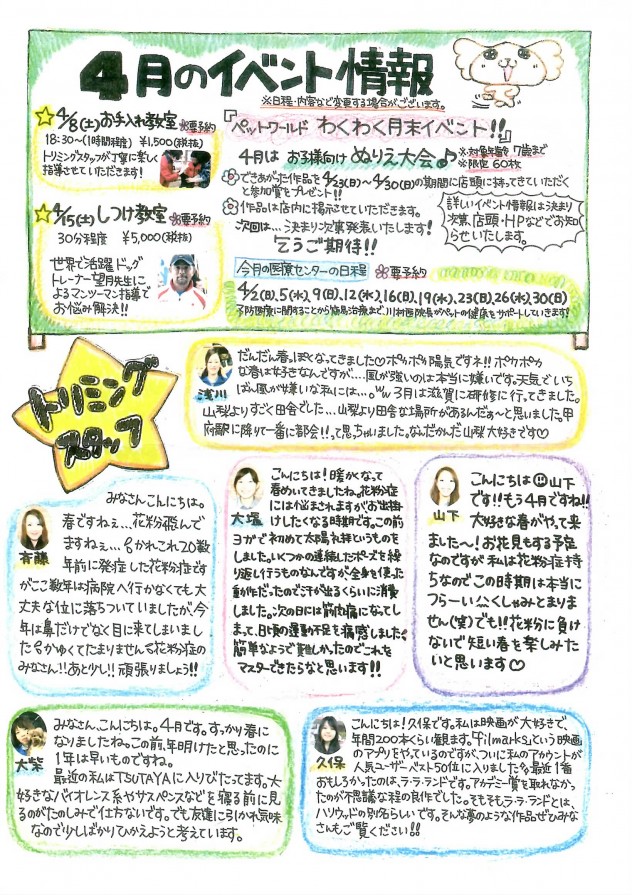 4月のイベント情報
※日程・内容など変更する場合がございます。
☆4/8(土)お手入れ教室 ※要予約
18:30~(1時間程度) ¥1,500(税抜)
トリミングスタッフが丁寧に楽しく
指導させていただきます!
☆4/15(土)しつけ教室 ※要予約
30分程度 ¥5,000(税抜)
世界で活躍ドッグ
トレーナー望月先生に
よるマンツーマン指導で
お悩み解決!!
『ペットワールド わくわく月末イベント!!』
4月は お子様向け ぬりえ大会♪
※対象年齢 7歳まで
※限定 60枚
できあがった作品を4/23(日)~4/30(日)の期間に店頭に持ってきていただく
と参加賞をプレゼント!!
作品は店内に掲示させていただきます。
次回は…決まり次第発表いたします!
乞うご期待!!
詳しいイベント情報は決まり
次第、店頭・HPなどでお知
らせいたします。
今月の医療センターの日程 ※要予約
4/2(日),5(水),9(日),12(水),16(日),19(水),23(日),26(水),30(日)
予防医療に関することから簡易治療まで、川村医院長がペットの健康をサポートしていきます!
トリミング
スタッフ
浅川
だんだん春っぽくなってきました♡ポカポカ陽気ですネ!!ポカポカ
な春は好きなんですが…風が強いのは本当に嫌いです。天気でいち
ばん風が嫌いな私には…。w 3月は滋賀に研修に行ってきました。
山梨よりすごく田舎でした…山梨より田舎な場所があるんだぁ~と思いました。甲
府駅に降りて一番に都会!!って思っちゃいました。なんだかんだ山梨大好きです♡
斉藤
みなさんこんにちは。
春ですねぇ…花粉飛んで
ますねぇ…かれこれ20数
年前に発症した花粉症です
がここ数年は病院へ行かなくても大
丈夫な位に落ちついていましたが、今
年は鼻だけでなく目に来てしまいまし
たかゆくてたまりません花粉症の
みなさん!!あと少し!!頑張りましょう!!
大塩
こんにちは!暖かくなって
春めいてきましたね。花粉症
には悩まされますがお出掛
けしたくなる時期です。この前
ヨガで初めて太陽礼拝というものを
しました。いくつかの連続したポーズを繰
り返し行うものなんですが全身を使った
動きだったので汗が出るくらいに消費
しました。次の日には筋肉痛になってし
まって、日頃の運動不足を痛感しました。
簡単なようで難しかったのでこれを
マスターできたらなと思います!!
山下
こんにちは 山下
です!!もう4月ですね!!
大好きな春がやって来
ました~!お花見もする予定
なのですが 私は花粉症持
ちなのでこの時期は本当に
つらーい くしゃみとまりま
せん(笑)でも!!花粉に負け
ないで短い春を楽しみた
いと思います♡
大柴
みなさん、こんにちは。4月です。すっかり春に
なりましたね。この前、年明けたと思ったのに
1年は早いものですね。
最近の私はTSUTAYAに入りびたってます。大
好きなバイオレンス系やサスペンスなどを寝る前に見
るのがたのしみで仕方ないです。でも友達に引かれ気味
なので少しばかりひかえようと考えています。
久保
こんにちは!久保です。私は映画が大好きで、
年間200本くらい観ます。「Filmarks」という映画
のアプリをやっているのですが、ついに私のアカウントが
人気ユーザーベスト50位に入りました 最近1番
おもしろかったのは、ラ・ラ・ランドです。アカデミー賞を取れなかっ
たのが不思議な程の良作でした。そもそもラ・ラ・ランドとは、
ハリウッドの別名らしいです。そんな夢のような作品ぜひみな
さんもご覧ください!!